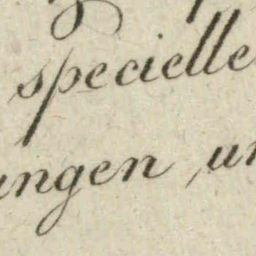 specielle
ungen, un